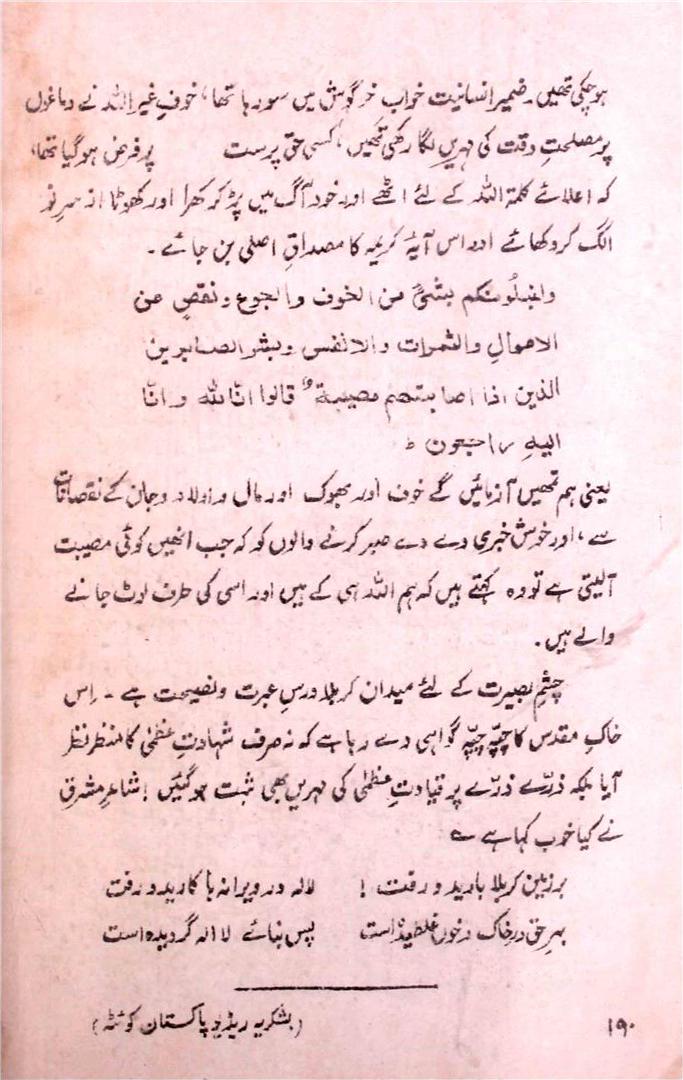 ہو چکی تھیں۔ ضمیر انسانیت خواب خرگوش میں سو رہا تھا، خوفِ غیر اللہ نے دماغوں
پر مصلحتِ وقت کی مہریں لگا رکھی تھیں، کسی حق پرست پر فرض ہو گیا تھا،
کہ اعلائے کلمۃ اللہ کے لئے اٹھے اور خود آگ میں پڑ کر کھرا اور کھوٹا از سرِ نو
الگ کر دکھائے اور اس آیۂ کریمہ کا مصداقِ اصلی بن جائے۔
ولنبلُونکم بشئ من الخوف والجوع ونقصٍ من
الاموالِ والثمرات والانفس وبشر الصابرین
الذین اذا اصابتھم مصیبة قالوا انّا للہ و انّا
الیہِ راجعون ط
یعنی ہم تمھیں آزمائیں گے خوف اور بھوک اور مال و اولاد و جان کے نقصانات
سے، اور خوش خبری دے دے صبر کرنے والوں کو کہ جب انھیں کوئی مصیبت
آلیتی ہے تو وہ کہتے ہیں کہ ہم اللہ ہی کے ہیں اور اسی کی طرف لوٹ جانے
والے ہیں۔
چشمِ بصیرت کے لئے میدان کربلا درسِ عبرت و نصیحت ہے۔ اِس
خاکِ مقدس کا چپّہ چپّہ گواہی دے رہا ہے کہ نہ صرف شہادتِ عظمٰی کا منظر نظر
آیا بلکہ ذرّے ذرّے پر قیادتِ عظمٰی کی مہریں بھی ثبت ہو گئیں! شاعرِ مشرق
نے کیا خوب کہا ہے ؎
بر زمین کربلا بارید و رفت! لالہ در ویرانہ ہا کارید و رفت
بہرِ حق در خاک و خوں غلطیدہ است پس بنائے لا الہ گردیدہ است
۱۹۰ (بشکریہ ریڈیو پاکستان کوئٹہ)